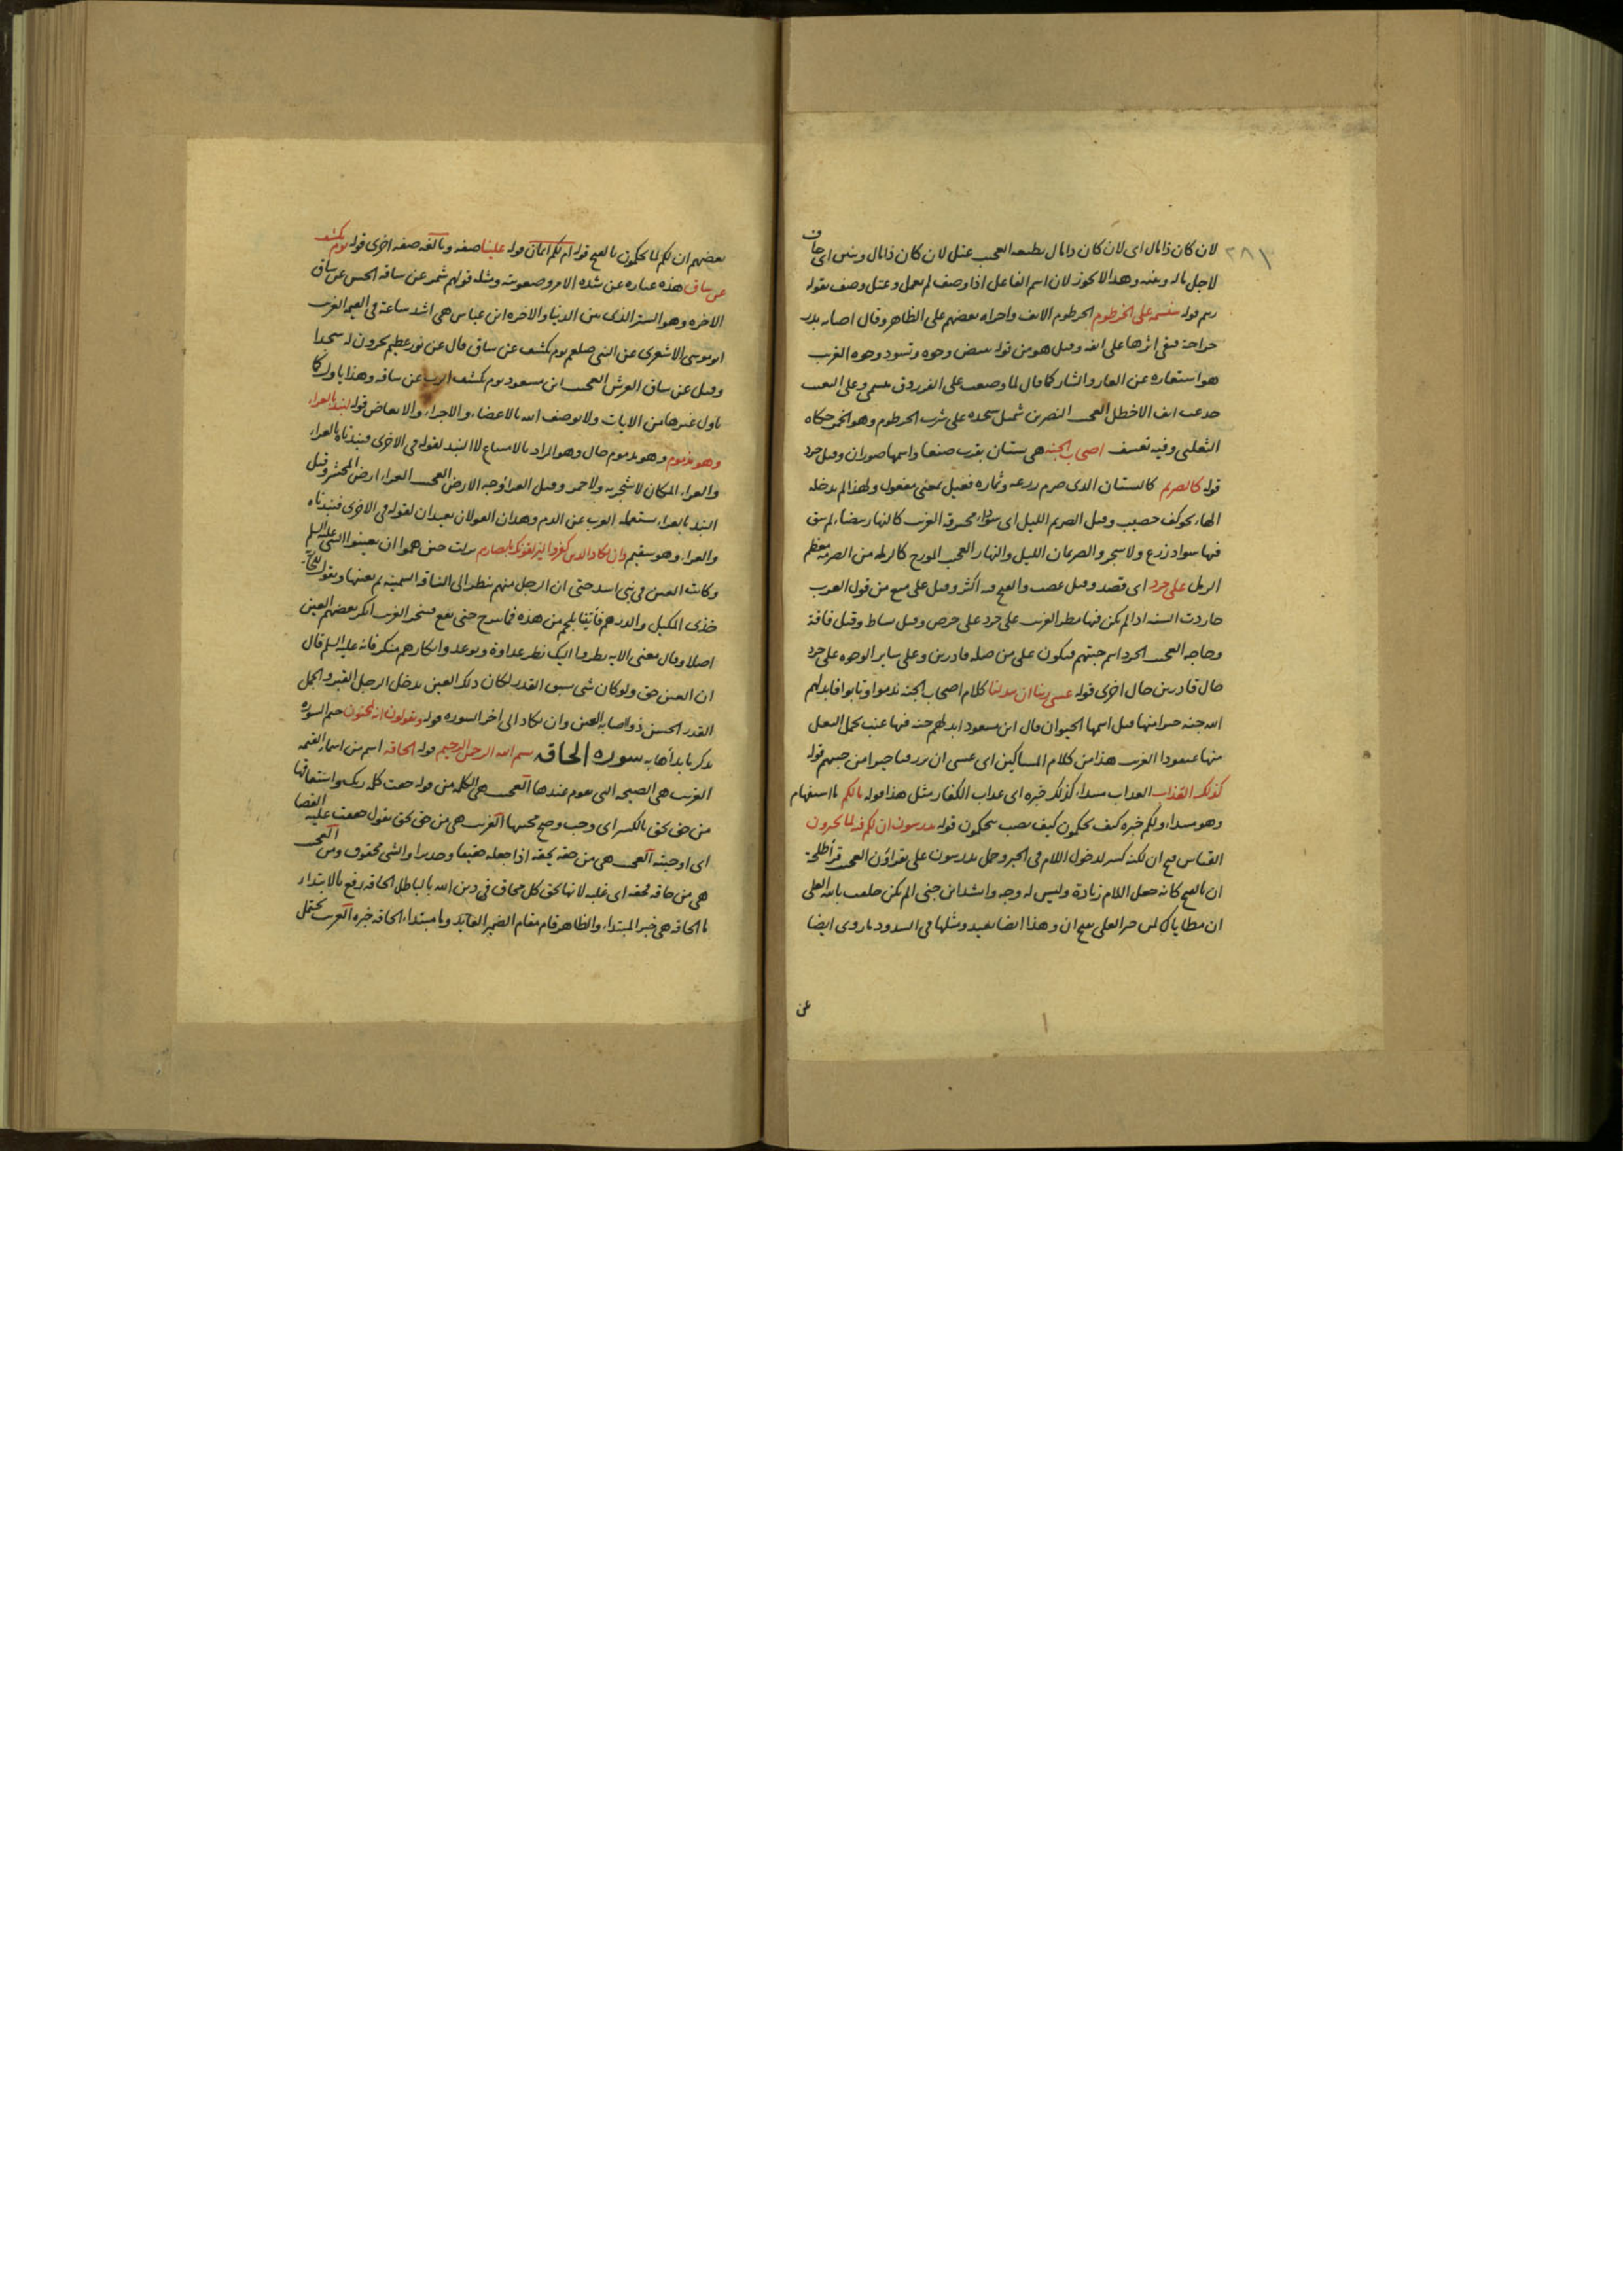 ٢٨١
لان كان ذا مال اى لان كان ذا مال يطيعه العجب عتل لان كان ذا مال وبنين اى حاف
لاجل ماله وبنيه وهذا لا يجوز لان اسم الفاعل اذا وصف لم يعمل وعتل وصف بقوله
زنيم قوله سنسمه على الخرطوم الخرطوم الانف واجراه بعضهم على الظاهر وقال اصابه بدر
جراحة فبقى اثرها على انفه وقيل هو من قوله تبيض وجوه وتسود وجوه الغرب
هو استعاره عن العار والشار كما قال لما وضعت على الفرزدق ميسمى وعلى البعيث
جدعت انف الاخطل العجب النضر بن شميل سنحده على شرب الخرطوم وهو الخمر حكاه
الثعلبى وفيه تعسف اصحاب الجنة هى بستان بقرب صنعا واسمها صوران وقيل حرد
قوله كالصريم كالبستان الذى صرم زرعه وثماره فعيل بمعنى مفعول ولهذا لم يدخله
الهاء نحو كف خضيب وقيل الصريم الليل اى سوداء محترقة الغرب كالنهار بيضاء لم يبق
فيها سواد زرع ولا شجر والصريمان الليل والنهار العجب المورج كالرملة من الصريمة معظم
الرمل على حرد اى قصد وقيل غضب والفتح فيه اكثر وقيل على منع من قول العرب
حاردت السنه اذا لم يكن فيها مطر الغرب على حرد على حرص وقيل نشاط وقيل فاقة
وحاجه العجب الحرد اسم جنتهم فيكون على من صله قادرين وعلى سائر الوجوه على حرد
حال قادرين حال اخرى قوله عسى ربنا ان يبدلنا كلام اصحاب الجنة ندموا وتابوا فابدلهم
الله جنه خيرا منها قيل اسمها الحيوان قال ابن مسعود ابدلهم جنه فيها عنب يحمل البغل
منها عنقودا الغرب هذا من كلام المساكين اى عسى ان يرزقنا خيرا من جنتهم قوله
كذلك العذاب العذاب مبتداء كذلك خبره اى عذاب الكفار مثل هذا قوله مالكم ما استفهام
وهو مبتداء ولكم خبره كيف تحكمون كيف نصب بتحكمون قوله تدرسون ان لكم فيه لما تخيرون
القياس فتح ان لكنه كسر لدخول اللام فى الخبر وحمل تدرسون على تقراؤن العجب قرأ طلحة
ان بالفتح كانه جعل اللام زيادة وليس له وجه وانشد ابن جنى الم تكن حلفت بالله العلى
ان مطاياك لمن خير المطى بفتح ان وهذا ايضا بعيد ومثلها فى الشذوذ ما روى ايضا
عن
بعضهم ان لكم لما تحكمون بالفتح قوله ام لكم ايمان قوله علينا صفه وبالغه صفه اخرى قوله يوم يكشف
عن ساق هذه عباره عن شده الامر وصعوبته ومثله قولهم شمر عن ساقه الحسن عن ساق
الاخره وهو الستر الذى بين الدنيا والاخره ابن عباس هى اشد ساعة فى القيمه الغرب
ابو موسى الاشعرى عن النبى صلعم يوم يكشف عن ساق قال عن نور عظيم يخرون له سجدا
وقيل عن ساق العرش العجب ابن مسعود يوم يكشف الرب عن ساقه وهذا ياول كما
ياول غيرها من الايات ولا يوصف الله بالاعضاء والاجزاء والابعاض قوله لنبذ بالعراء
وهو مذموم وهو مذموم حال وهو المراد بالامتناع لا النبذ لقوله فى الاخرى فنبذناه بالعراء
والعراء المكان لا شجر به ولا خمر وقيل العراء وجه الارض العجب العراء ارض المحشر وقيل
النبذ بالعراء يستعمله العرب عن الذم وهذان القولان بعيدان لقوله فى الاخرى فنبذناه
بالعراء وهو سقيم وان يكاد الذين كفروا ليزلقونك بابصارهم نزلت حين هموا ان يعينوا النبى عليه السلم
وكانت العين فى بنى اسد حتى ان الرجل منهم ينظر الى الناقه السمينه ثم يعينها ويقول للجارية
خذى المكيل والدرهم فأتينا بلحم من هذه فما تبرح حتى تقع فتنحر الغرب انكر بعضهم العين
اصلا وقال معنى الايه ينظروا اليك نظر عداوة وتوعد وانكارهم منكر فانه عليه السلم قال
ان العين حق ولو كان شى يسبق القدر لكان ذلك العين تدخل الرجل القبر والجمل
القدر الحسن ذوا اصابه العين وان يكاد الى اخر السوره قوله ويقولون انه لمجنون ختم السوره
بذكر ما بدأها به سورة الحاقة بسم الله الرحمن الرحيم قوله الحاقه اسم من اسماء القيمه
الغرب هى الصيحه التى تقوم عندها العجب هى الكلمه من قوله حقت كلمة ربك واشتقاقها
من حق يحق بالكسر اى وجب وصح مجيئها الغرب هى من حق يحق بقول حققت عليه القضا
اى اوجبته العجب هى من حقه يحقه اذا جعله حقيقا وجديرا والشى محقوق وقيل العجب
هى من حاقه يحقه اى غلبه لانها تحق كل محاق فى دين الله بالباطل الحاقه رفع بالابتداء
ما الحاقه هى خبر المبتداء والظاهر قام مقام الضمير العايد وما مبتداء الحاقه خبره الغرب يحتمل